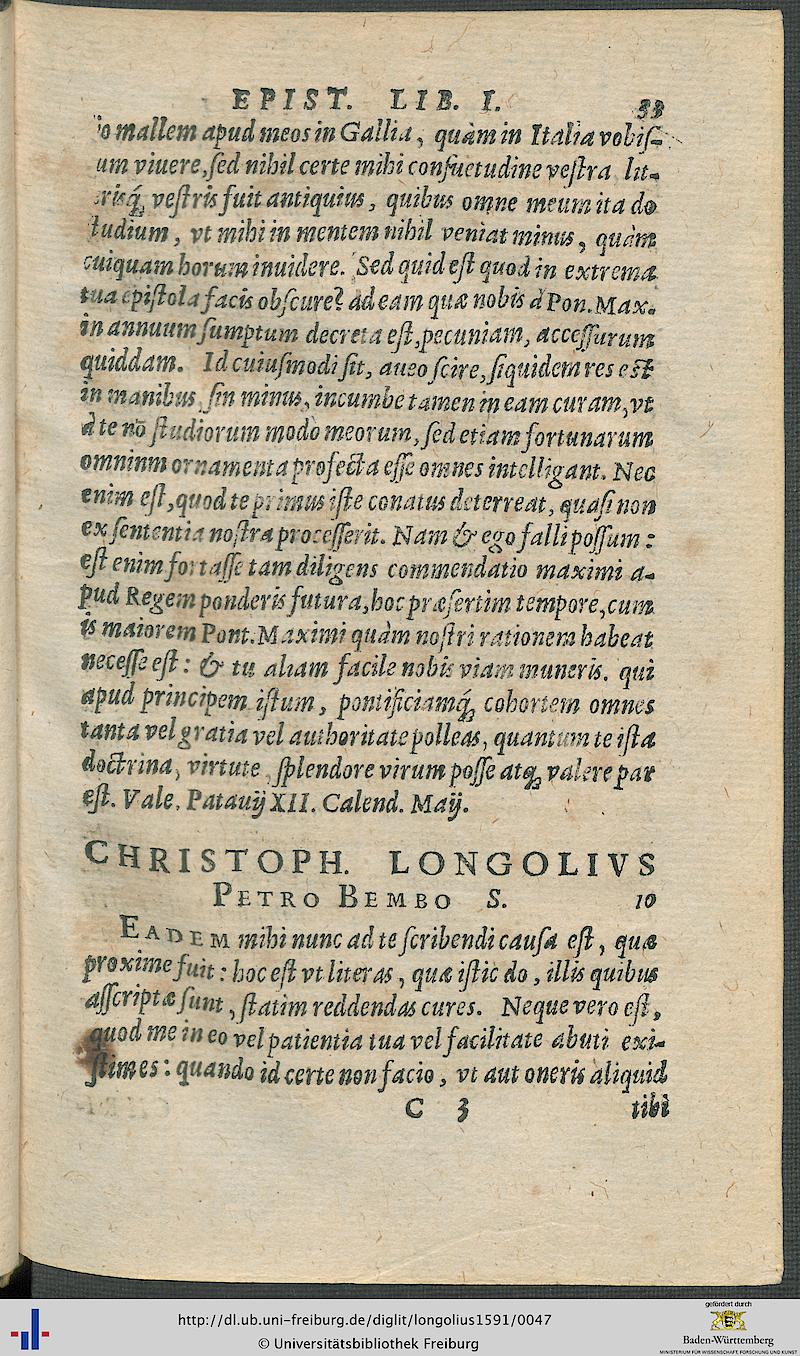 EPIST. LIB. I. 33
io mallem apud meos in Gallia, quàm in Italia vobiſ-
um viuere, ſed nihil certe mihi conſuetudine veſtra lit-
erisq́; veſtris fuit antiquius, quibus omne meum ita do
ſtudium, vt mihi in mentem nihil veniat minus, quàm
cuiquam horum inuidere. Sed quid eſt quod in extrema
tua epiſtola facis obſcure? ad eam quæ nobis à Pon. Max.
in annuum ſumptum decreta eſt, pecuniam, acceſſurum
quiddam. Id cuiuſmodi ſit, aueo ſcire, ſiquidem res eſt
in manibus, ſin minus, incumbe tamen in eam curam, vt
à te nō ſtudiorum modò meorum, ſed etiam fortunarum
omninm ornamenta profecta eſſe omnes intelligant. Nec
enim eſt, quod te primus iſte conatus deterreat, quaſi non
ex ſententia noſtra proceſſerit. Nam & ego falli poſſum:
eſt enim fortaſſe tam diligens commendatio maximi a-
pud Regem ponderis futura, hoc præſertim tempore, cum
is maiorem Pont. Maximi quàm noſtri rationem habeat
neceſſe eſt: & tu aliam facile nobis viam muneris. qui
apud principem iſtum, pontificiamq́; cohortem omnes
tanta vel gratia vel authoritate polleas, quantum te iſta
doctrina, virtute, ſplendore virum poſſe atq; valere par
eſt. Vale. Patauij XII. Calend. Maij.
CHRISTOPH. LONGOLIVS
PETRO BEMBO S. 10
EADEM mihi nunc ad te ſcribendi cauſa eſt, quæ
proxime fuit: hoc eſt vt literas, quæ iſtic do, illis quibus
aſſcriptæ ſunt, ſtatim reddendas cures. Neque vero eſt,
quod me in eo vel patientia tua vel facilitate abuti exi-
ſtimes: quando id certe non facio, vt aut oneris aliquid
C 3 tibi
http://dl.ub.uni-freiburg.de/diglit/longolius1591/0047
© Universitätsbibliothek Freiburg
gefördert durch
Baden-Württemberg
MINISTERIUM FÜR WISSENSCHAFT, FORSCHUNG UND KUNST